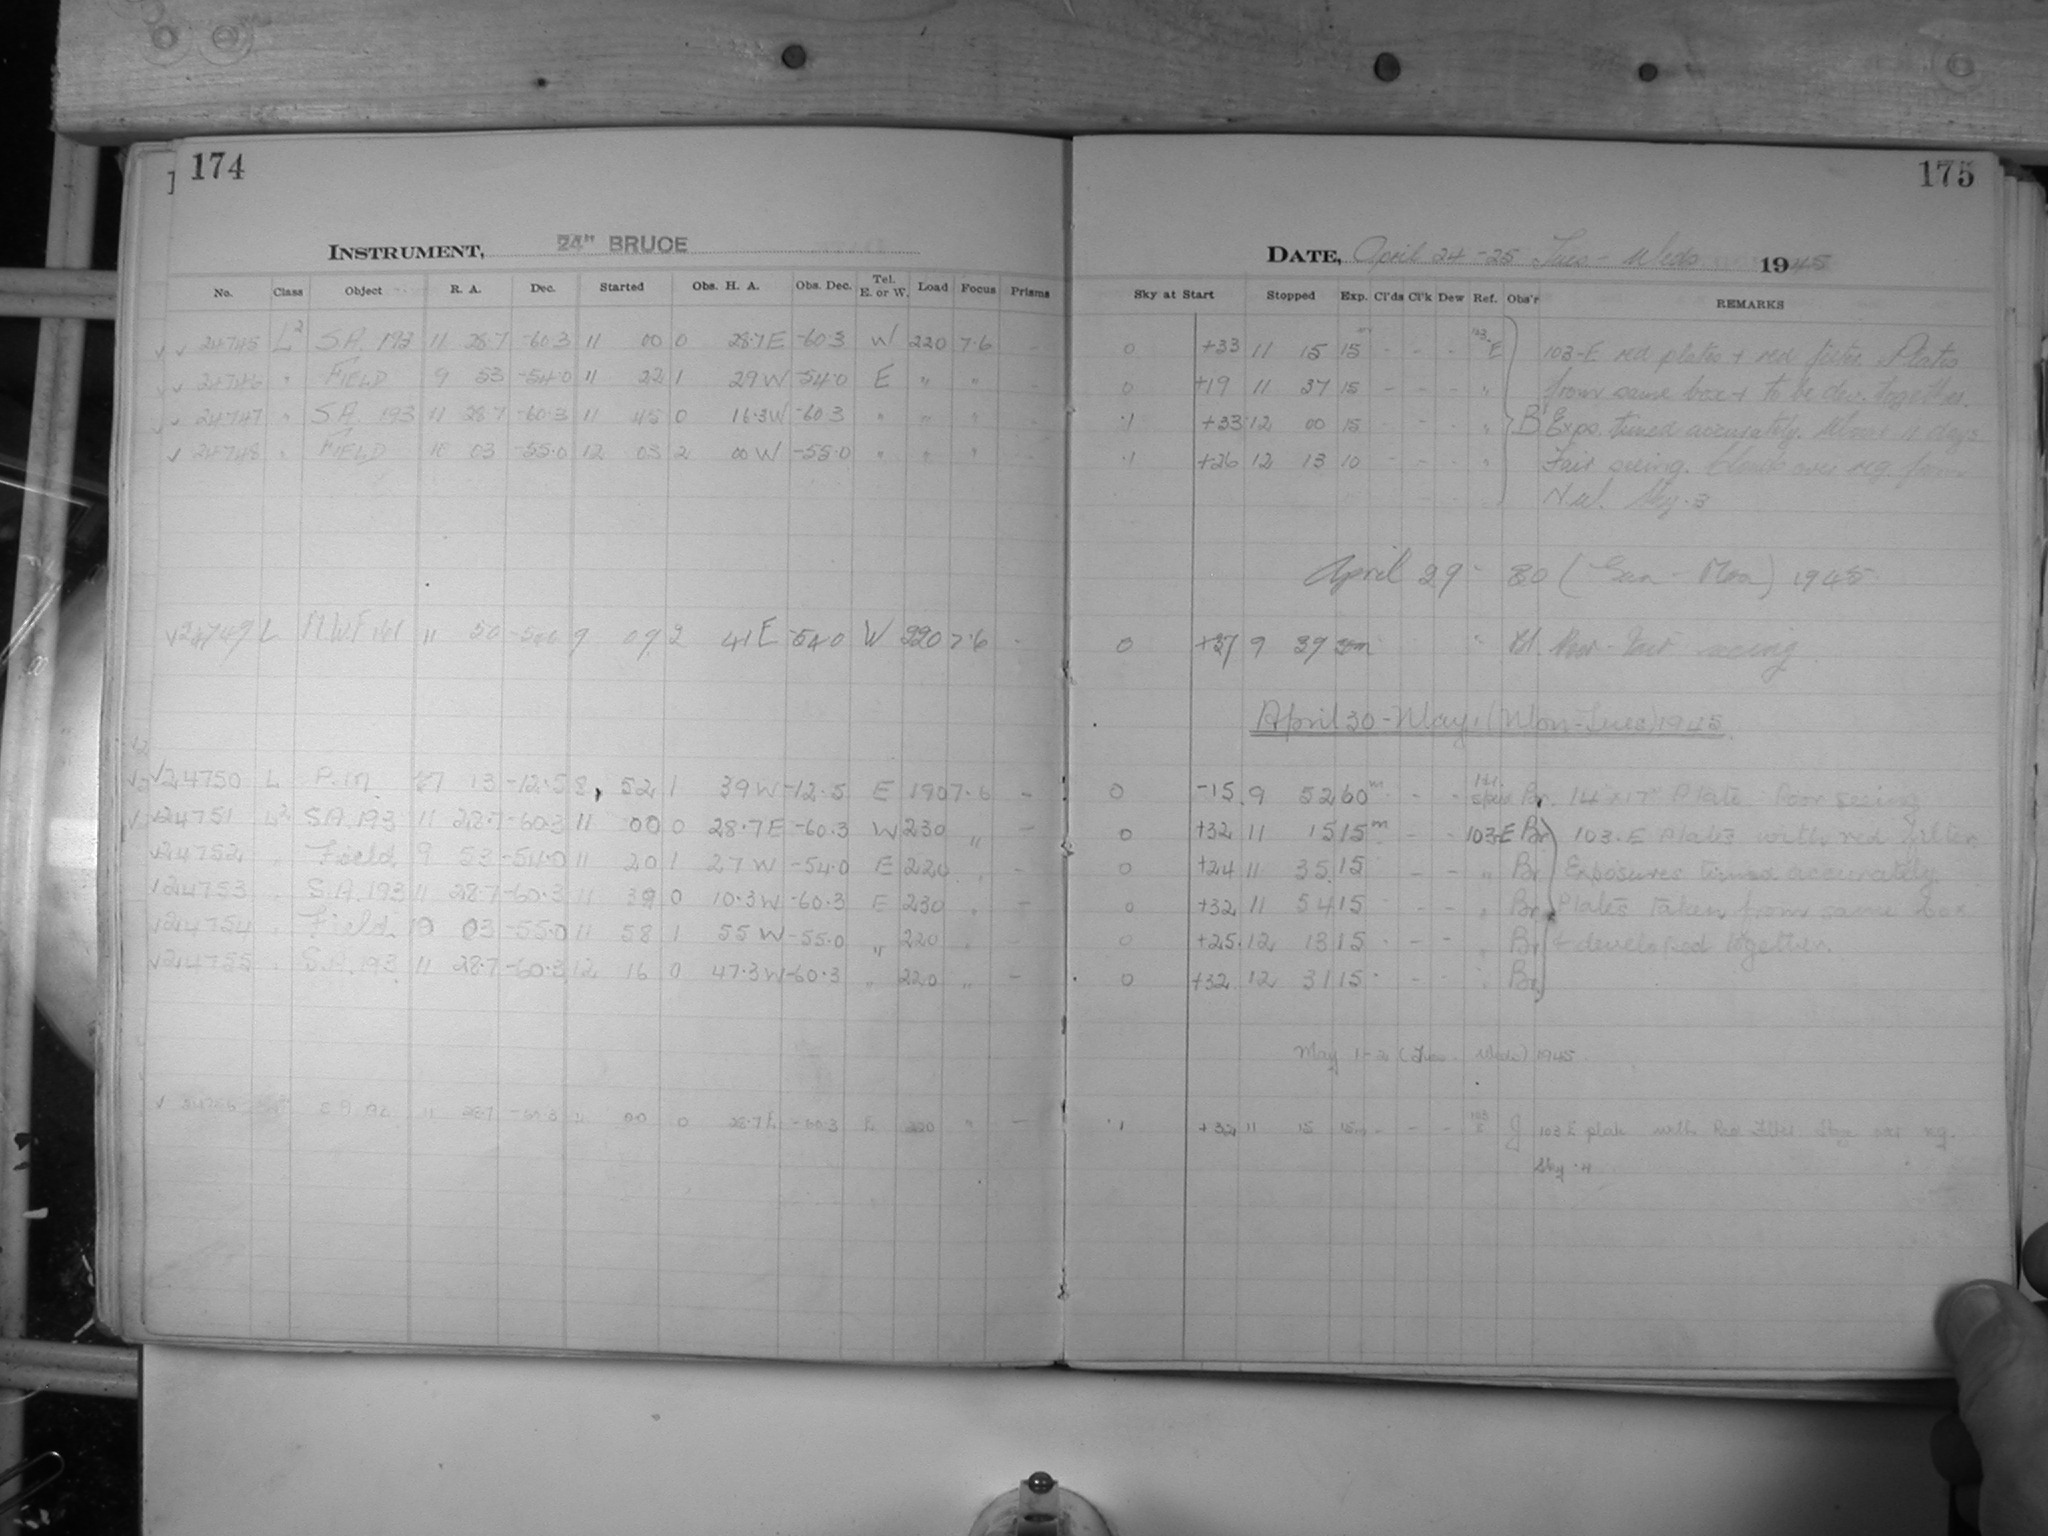 174
175
INSTRUMENT, 24" BRUCE
DATE, April 24-25 Tues - Weds 1945
No. Class Object R. A. Dec. Started Obs. H. A. Obs. Dec. Tel. E. or W. Load Focus Prisms
Sky at Start Stopped Exp. Cl'ds Cl'k Dew Ref. Obs'r REMARKS
24745 L2 S.A. 193 11 28.7 -60.3 11 00 0 28.7E -60.3 W 220 7.6 - 0 +33 11 15 15m - - - 103-E 103-E red plates + red filter. Plates
24746 " FIELD 9 53 -54.0 11 22 1 29W -54.0 E " " - 0 +19 11 37 15 - - - " from same box + to be dev. together.
24747 " S.A. 193 11 28.7 -60.3 11 45 0 16.3W -60.3 " " " .1 +33 12 00 15 - - - " B Expo. timed accurately. Moon days
24748 " FIELD 10 03 -55.0 12 03 2 00W -55.0 " " " .1 +26 12 13 10 - - - " Fair seeing. Clouds over reg. from
N.W. Sky .3
April 29 - 30 (Sun - Mon) 1945
24749 L 11 50 9 09 2 41E -54.0 W 220 7.6 - 0 +37 9 39 30m " Poor - Fair seeing
April 30 - May 1 (Mon-Tues) 1945
24750 L 13 -12.5 8 52 1 39W -12.5 E 190 7.6 - 0 -15 9 52 60m - - - Br. 14"x17" Plate Poor seeing
24751 L2 S.A. 193 11 28.7 -60.3 11 00 0 28.7E -60.3 W 230 " - 0 +32 11 15 15m - - 103-E Br. 103-E Plates with red filter
24752 " Field 9 53 -54.0 11 20 1 27W -54.0 E 220 " - 0 +24 11 35 15 - - " Br. Exposures timed accurately.
24753 " S.A. 193 11 28.7 -60.3 11 39 0 10.3W -60.3 E 230 " - 0 +32 11 54 15 - - - " Br. Plates taken from same box
24754 " Field 10 03 -55.0 11 58 1 55W -55.0 " 220 " - 0 +25 12 13 15 - - - " Br. + developed together.
24755 " S.A. 193 11 28.7 -60.3 12 16 0 47.3W -60.3 " 220 " - 0 +32 12 31 15 - - - " Br.
May 1-2 (Tues - Weds) 1945
24756 11 28.7 -60.3 11 00 0 28.7E -60.3 E 220 " - .1 +32 11 15 15m - - - 103 E J 103 E plate with Red Filter. over reg.
Sky .4